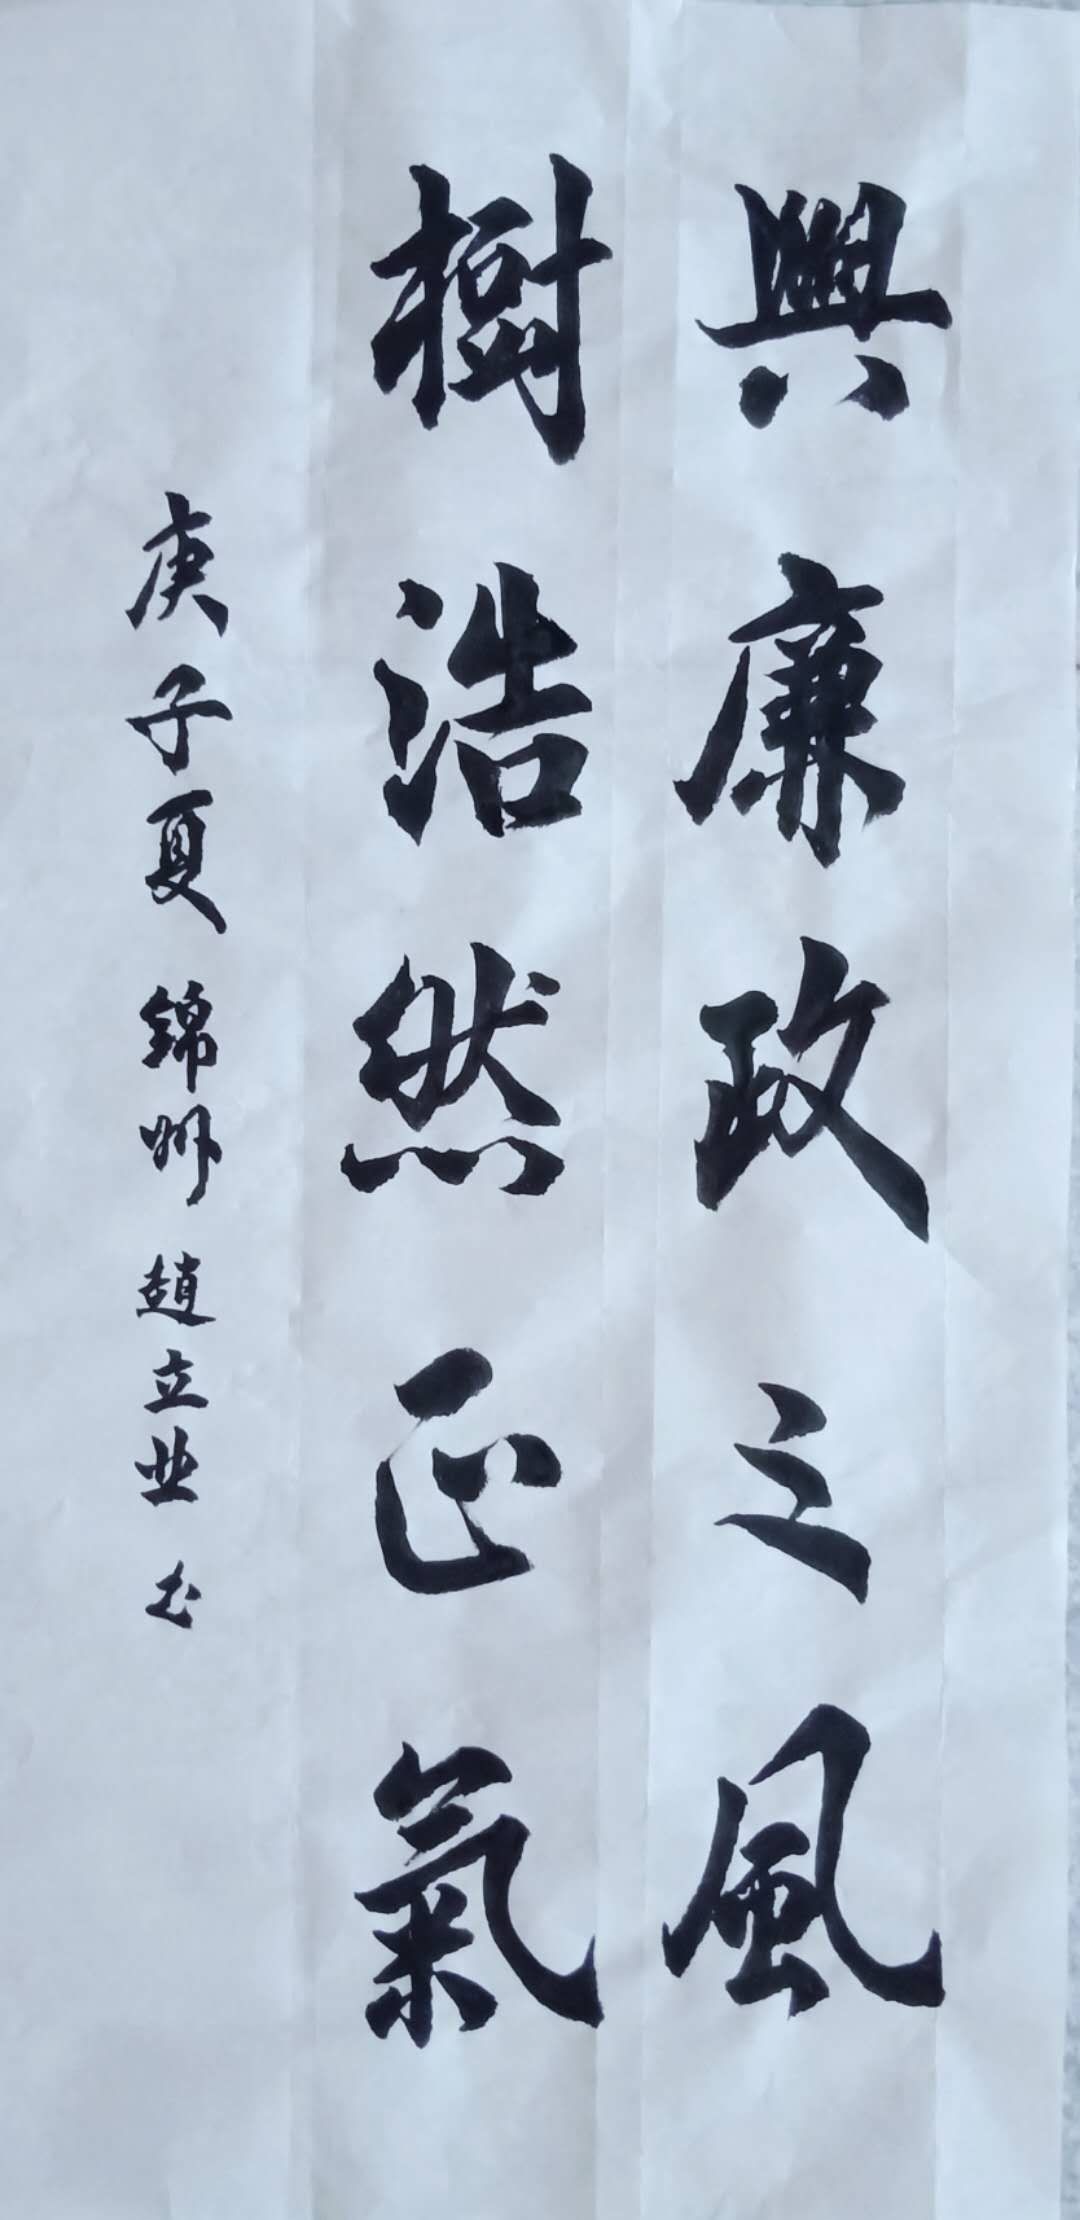 興廉政之風
樹浩然正氣
庚子夏 錦州 趙立业 书